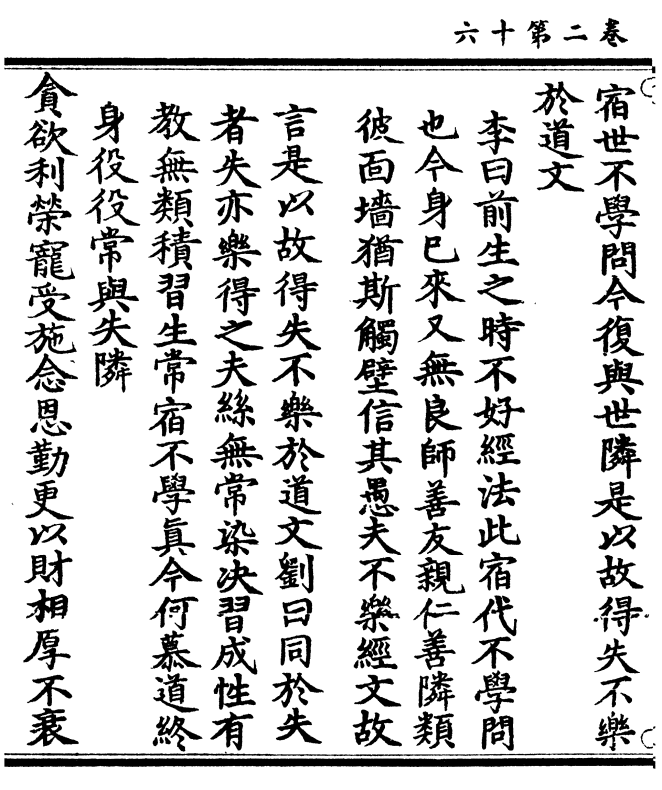 卷二第十六
宿世不學問今復與世隣是以故得失不樂
於道文
李曰前生之時不好經法此宿代不學問
也今身已來又無良師善友親仁善隣類
彼面墻猶斯觸壁信其愚夫不樂經文故
言是以故得失不樂於道文劉曰同於失
者失亦樂得之夫絲無常染决習成性有
教無類積習生常宿不學真今何慕道終
身役役常與失隣
貪欲利榮寵受施念恩勤更以財相厚不衰